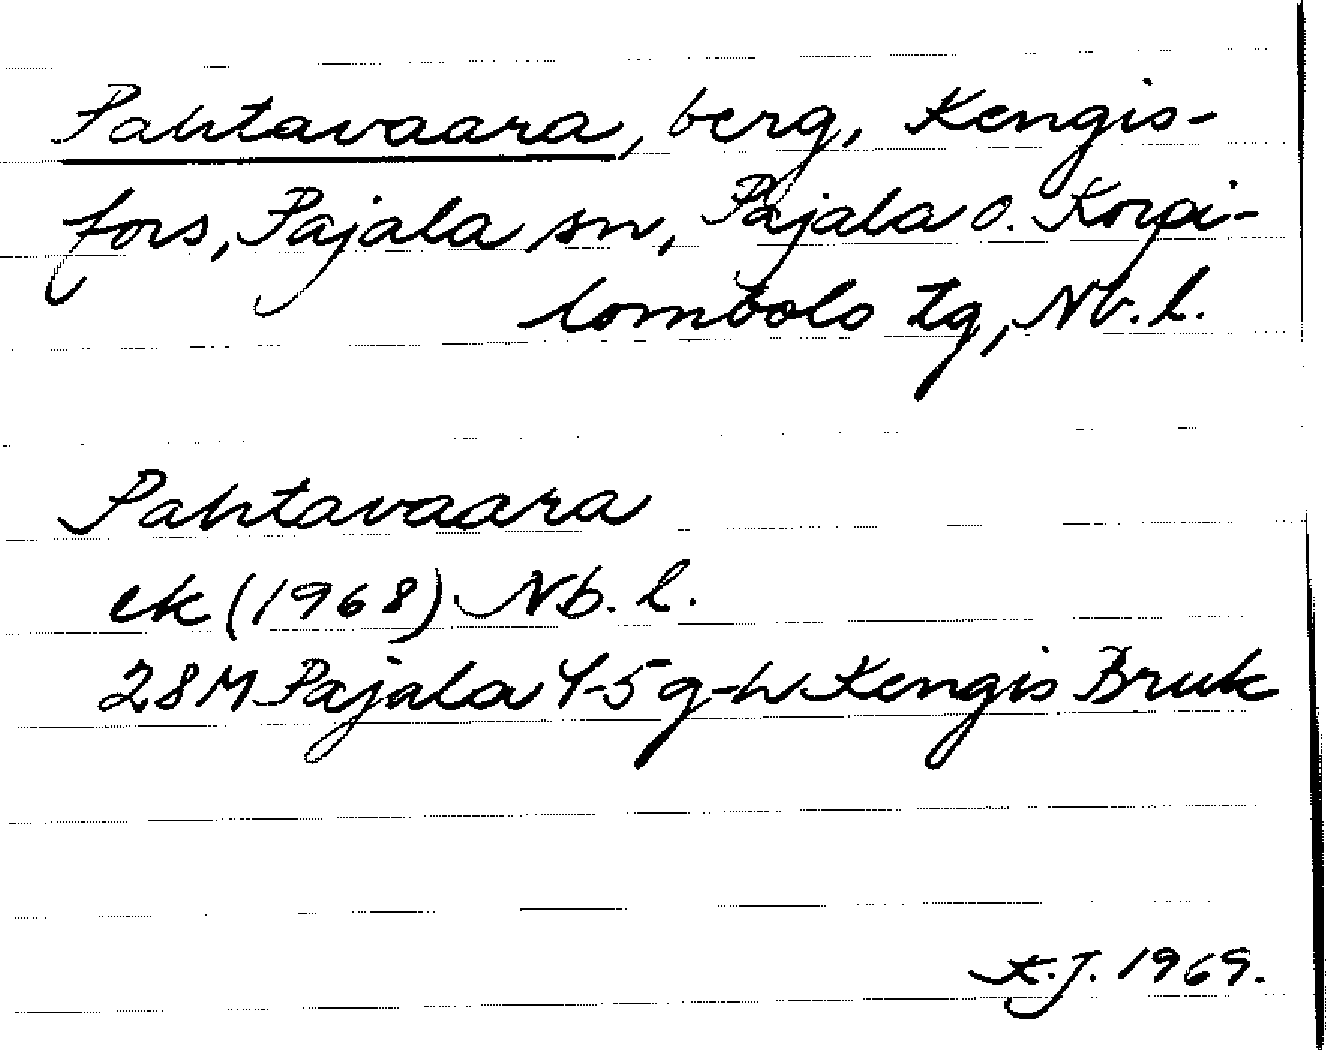 Pahtavaara, berg, Kengis-
fors, Pajala sn, Pajala o. Korpi-
lombolo tg, Nb. l.
Pahtavaara
ek (1968) Nb. l.
28M Pajala 4-5 g-h Kengis Bruk
K.J. 1969.